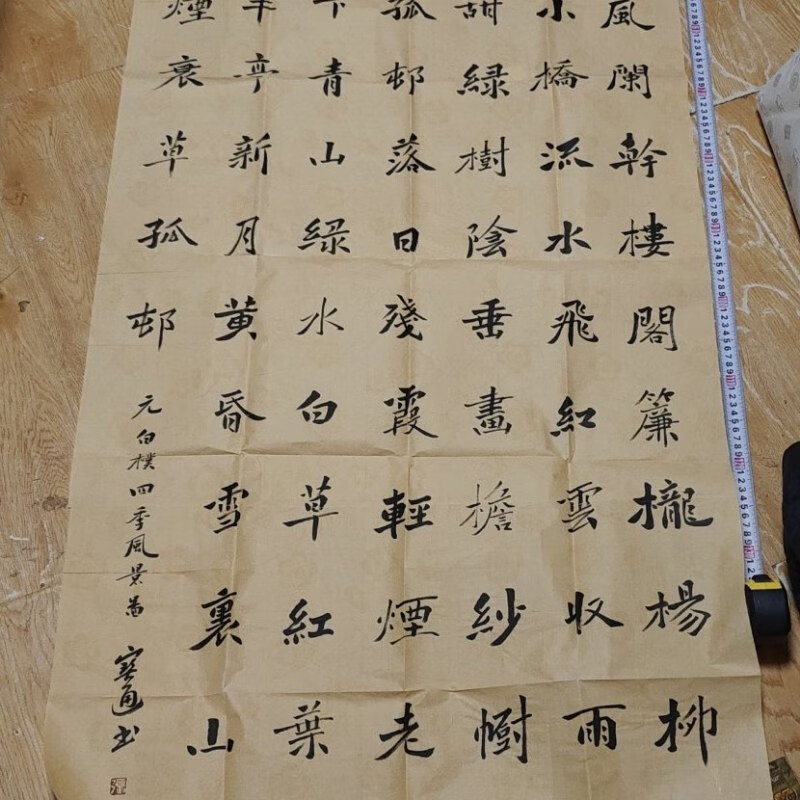 風闌幹樓閣簾櫳楊柳
小橋流水飛紅雲收雨
甜綠樹陰垂畫檐紗幮
孤邨落日殘霞輕煙老
下青山綠水白草紅葉
半亭新月黄昏雪裏山
煙衰草孤邨
元白樸四季風景
通书